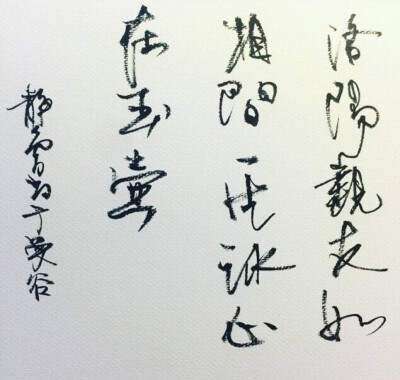 洛陽親友如
相問一片冰心
在玉壺
静書于曼谷